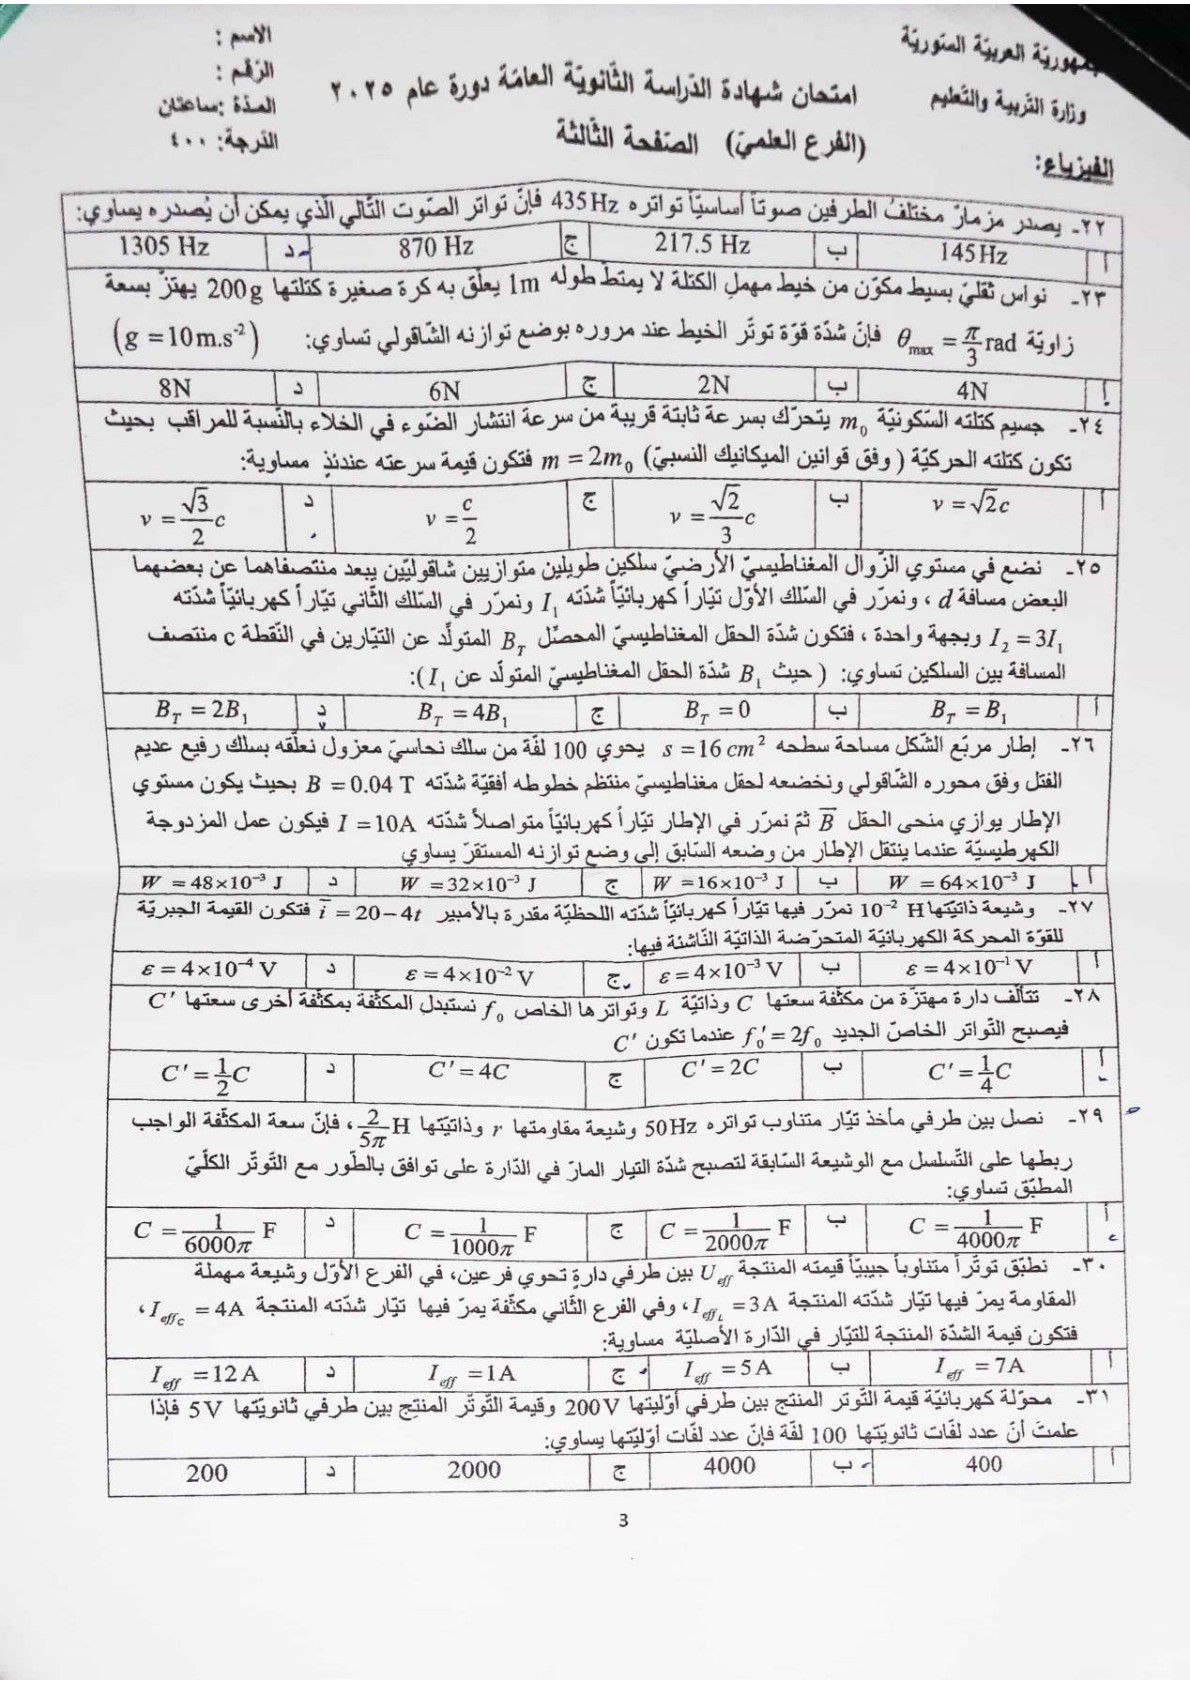 الجمهوريّة العربيّة السّوريّة
وزارة التّربية والتّعليم
الفيزياء:
امتحان شهادة الدّراسة الثّانويّة العامّة دورة عام ٢٠٢٥
(الفرع العلميّ) الصّفحة الثّالثة
الاسم :
الرّقم :
المدّة :ساعتان
الدّرجة: ٤٠٠
٢٢- يصدر مزمارٌ مختلفُ الطرفين صوتاً أساسيّاً تواتره 435Hz فإنّ تواتر الصّوت التّالي الّذي يمكن أن يُصدره يساوي:
أ 145Hz ب 217.5 Hz ج 870 Hz د 1305 Hz
٢٣- نواس ثقليّ بسيط مكوّن من خيط مهمل الكتلة لا يمتطّ طوله 1m يعلّق به كرة صغيرة كتلتها 200g يهتزّ بسعة
زاويّة θmax = π/3 rad فإنّ شدّة قوّة توتّر الخيط عند مروره بوضع توازنه الشّاقولي تساوي: (g = 10m.s⁻²)
أ 4N ب 2N ج 6N د 8N
٢٤- جسيم كتلته السّكونيّة m₀ يتحرّك بسرعة ثابتة قريبة من سرعة انتشار الضّوء في الخلاء بالنّسبة للمراقب بحيث
تكون كتلته الحركيّة ( وفق قوانين الميكانيك النسبيّ) m = 2m₀ فتكون قيمة سرعته عندئذٍ مساوية:
أ v = √2c ب v = √2/3 c ج v = c/2 د v = √3/2 c
٢٥- نضع في مستوي الزّوال المغناطيسيّ الأرضيّ سلكين طويلين متوازيين شاقوليّين يبعد منتصفاهما عن بعضهما
البعض مسافة d ، ونمرّر في السّلك الأوّل تيّاراً كهربائيّاً شدّته I₁ ونمرّر في السّلك الثّاني تيّاراً كهربائيّاً شدّته
I₂ = 3I₁ وبجهة واحدة ، فتكون شدّة الحقل المغناطيسيّ المحصّل B_T المتولّد عن التيّارين في النّقطة c منتصف
المسافة بين السلكين تساوي: ( حيث B₁ شدّة الحقل المغناطيسيّ المتولّد عن I₁):
أ B_T = B₁ ب B_T = 0 ج B_T = 4B₁ د B_T = 2B₁
٢٦- إطار مربّع الشّكل مساحة سطحه s = 16 cm² يحوي 100 لفّة من سلك نحاسيّ معزول نعلّقه بسلك رفيع عديم
الفتل وفق محوره الشّاقولي ونخضعه لحقل مغناطيسيّ منتظم خطوطه أفقيّة شدّته B = 0.04 T بحيث يكون مستوي
الإطار يوازي منحى الحقل B ثمّ نمرّر في الإطار تيّاراً كهربائيّاً متواصلاً شدّته I = 10A فيكون عمل المزدوجة
الكهرطيسيّة عندما ينتقل الإطار من وضعه السّابق إلى وضع توازنه المستقرّ يساوي
أ W = 64×10⁻³ J ب W = 16×10⁻³ J ج W = 32×10⁻³ J د W = 48×10⁻³ J
٢٧- وشيعة ذاتيّتها 10⁻² H نمرّر فيها تيّاراً كهربائيّاً شدّته اللحظيّة مقدرة بالأمبير i = 20−4t فتكون القيمة الجبريّة
للقوّة المحركة الكهربائيّة المتحرّضة الذاتيّة النّاشئة فيها:
أ ε = 4×10⁻¹ V ب ε = 4×10⁻³ V ج ε = 4×10⁻² V د ε = 4×10⁻⁴ V
٢٨- تتألّف دارة مهتزّة من مكثّفة سعتها C وذاتيّة L وتواترها الخاص f₀ نستبدل المكثّفة بمكثّفة أخرى سعتها C′
فيصبح التّواتر الخاصّ الجديد f₀′ = 2f₀ عندما تكون C′
أ C′ = 1/4 C ب C′ = 2C ج C′ = 4C د C′ = 1/2 C
٢٩- نصل بين طرفي مأخذ تيّار متناوب تواتره 50Hz وشيعة مقاومتها r وذاتيّتها 2/5π H، فإنّ سعة المكثّفة الواجب
ربطها على التّسلسل مع الوشيعة السّابقة لتصبح شدّة التيار المارّ في الدّارة على توافق بالطّور مع التّوتر الكلّيّ
المطبّق تساوي:
أ C = 1/4000π F ب C = 1/2000π F ج C = 1/1000π F د C = 1/6000π F
٣٠- نطبّق توتّراً متناوباً جيبيّاً قيمته المنتجة U_eff بين طرفي دارةٍ تحوي فرعين، في الفرع الأوّل وشيعة مهملة
المقاومة يمرّ فيها تيّار شدّته المنتجة I_effL = 3A، وفي الفرع الثّاني مكثّفة يمرّ فيها تيّار شدّته المنتجة I_effC = 4A ،
فتكون قيمة الشدّة المنتجة للتيّار في الدّارة الأصليّة مساوية:
أ I_eff = 7A ب I_eff = 5A ج I_eff = 1A د I_eff = 12A
٣١- محوّلة كهربائيّة قيمة التّوتر المنتج بين طرفي أوّليتها 200V وقيمة التّوتّر المنتِج بين طرفي ثانويّتها 5V فإذا
علمتَ أنّ عدد لفّات ثانويّتها 100 لفّة فإنّ عدد لفّات أوّليّتها يساوي:
أ 400 ب 4000 ج 2000 د 200
3